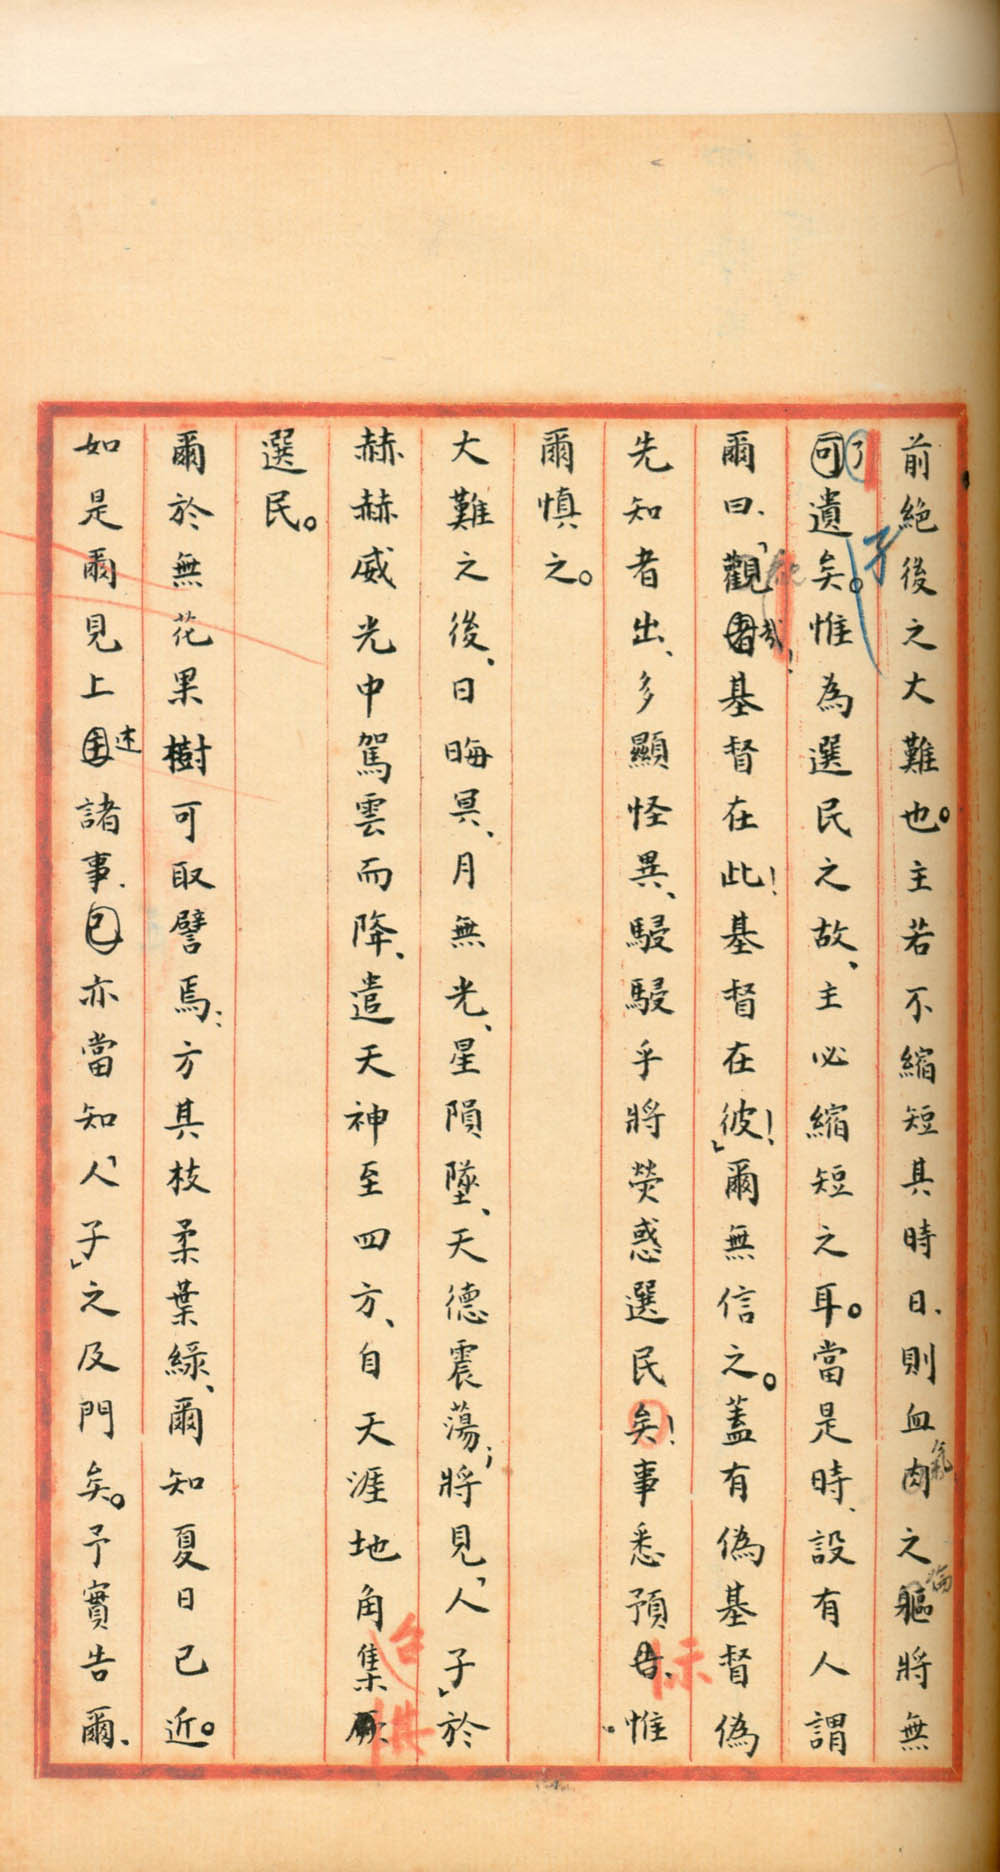 前絕後之大難也。主若不縮短其時日、則血肉之軀將無
可遺矣。惟為選民之故、主必縮短之耳。當是時、設有人謂
爾曰、「觀哉!基督在此!基督在彼!」爾無信之。蓋有偽基督偽
先知者出、多顯怪異、駸駸乎將熒惑選民矣!事悉預告、惟
爾慎之。
大難之後、日晦冥、月無光、星隕墜、天德震蕩;將見「人子」於
赫赫威光中駕雲而降、遣天神至四方、自天涯地角集厥
選民。
爾於無花果樹可取譬焉:方其枝柔葉綠、爾知夏日已近。
如是爾見上述諸事、亦當知「人子」之及門矣。予實告爾、